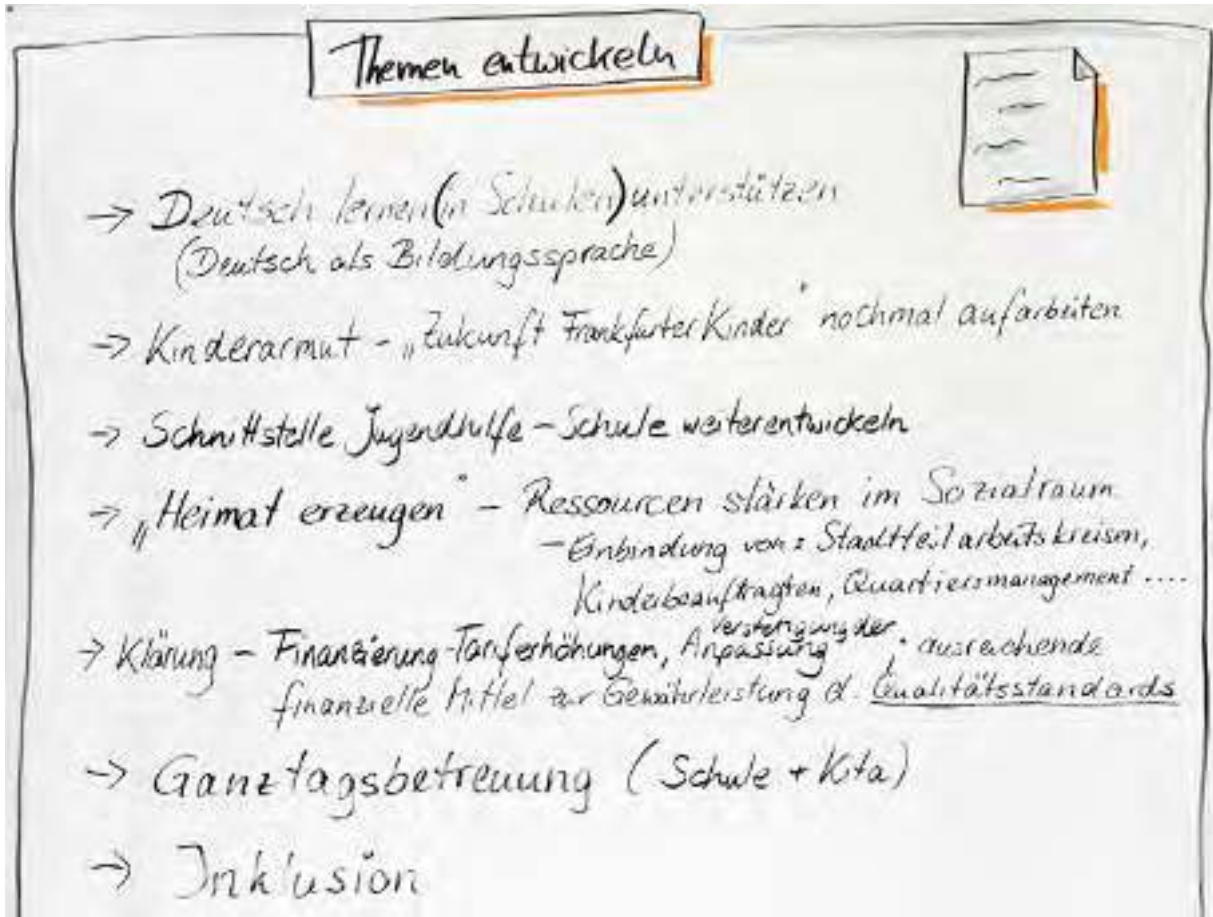 Themen entwickeln
→ Deutsch lernen (in Schulen) unterstützen
(Deutsch als Bildungssprache)
→ Kinderarmut - „Zukunft Frankfurter Kinder" nochmal aufarbeiten
→ Schnittstelle Jugendhilfe - Schule weiterentwickeln
→ „Heimat erzeugen" - Ressourcen stärken im Sozialraum
- Einbindung von: Stadtteilarbeitskreisen,
Kinderbeauftragten, Quartiersmanagement ....
Verstetigung der
→ Klärung - Finanzierung Tariferhöhungen, Anpassung, ausreichende
finanzielle Mittel zur Gewährleistung d. Qualitätsstandards
→ Ganztagsbetreuung (Schule + Kita)
→ Inklusion